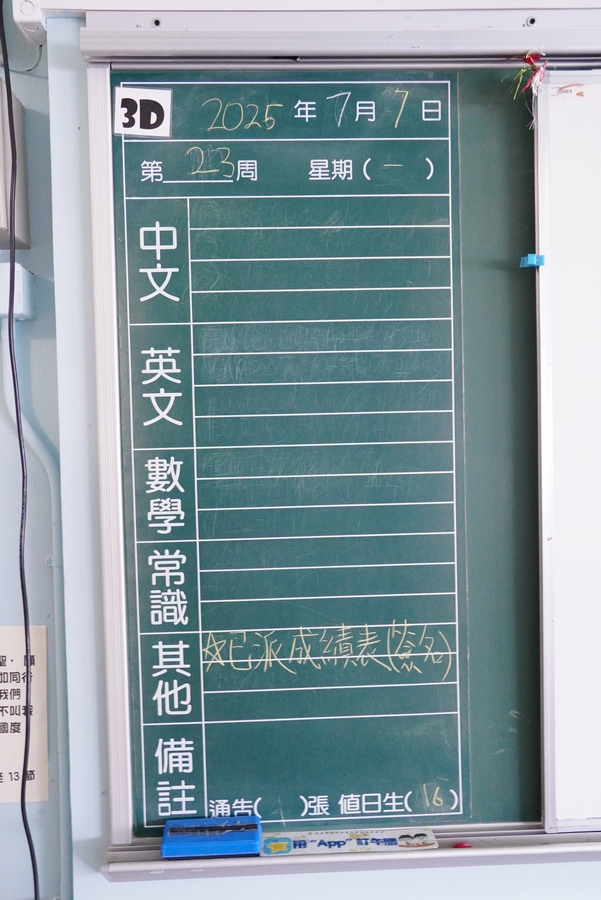 3D
2025年7月7日
第23周 星期(一)
中文
英文
數學
常識
其他
☆已派成績表(簽名)
備註
通告( )張 值日生(16)
用"App"訂午膳
聖．願
如同行
我們
不叫我
國度
至 13 節